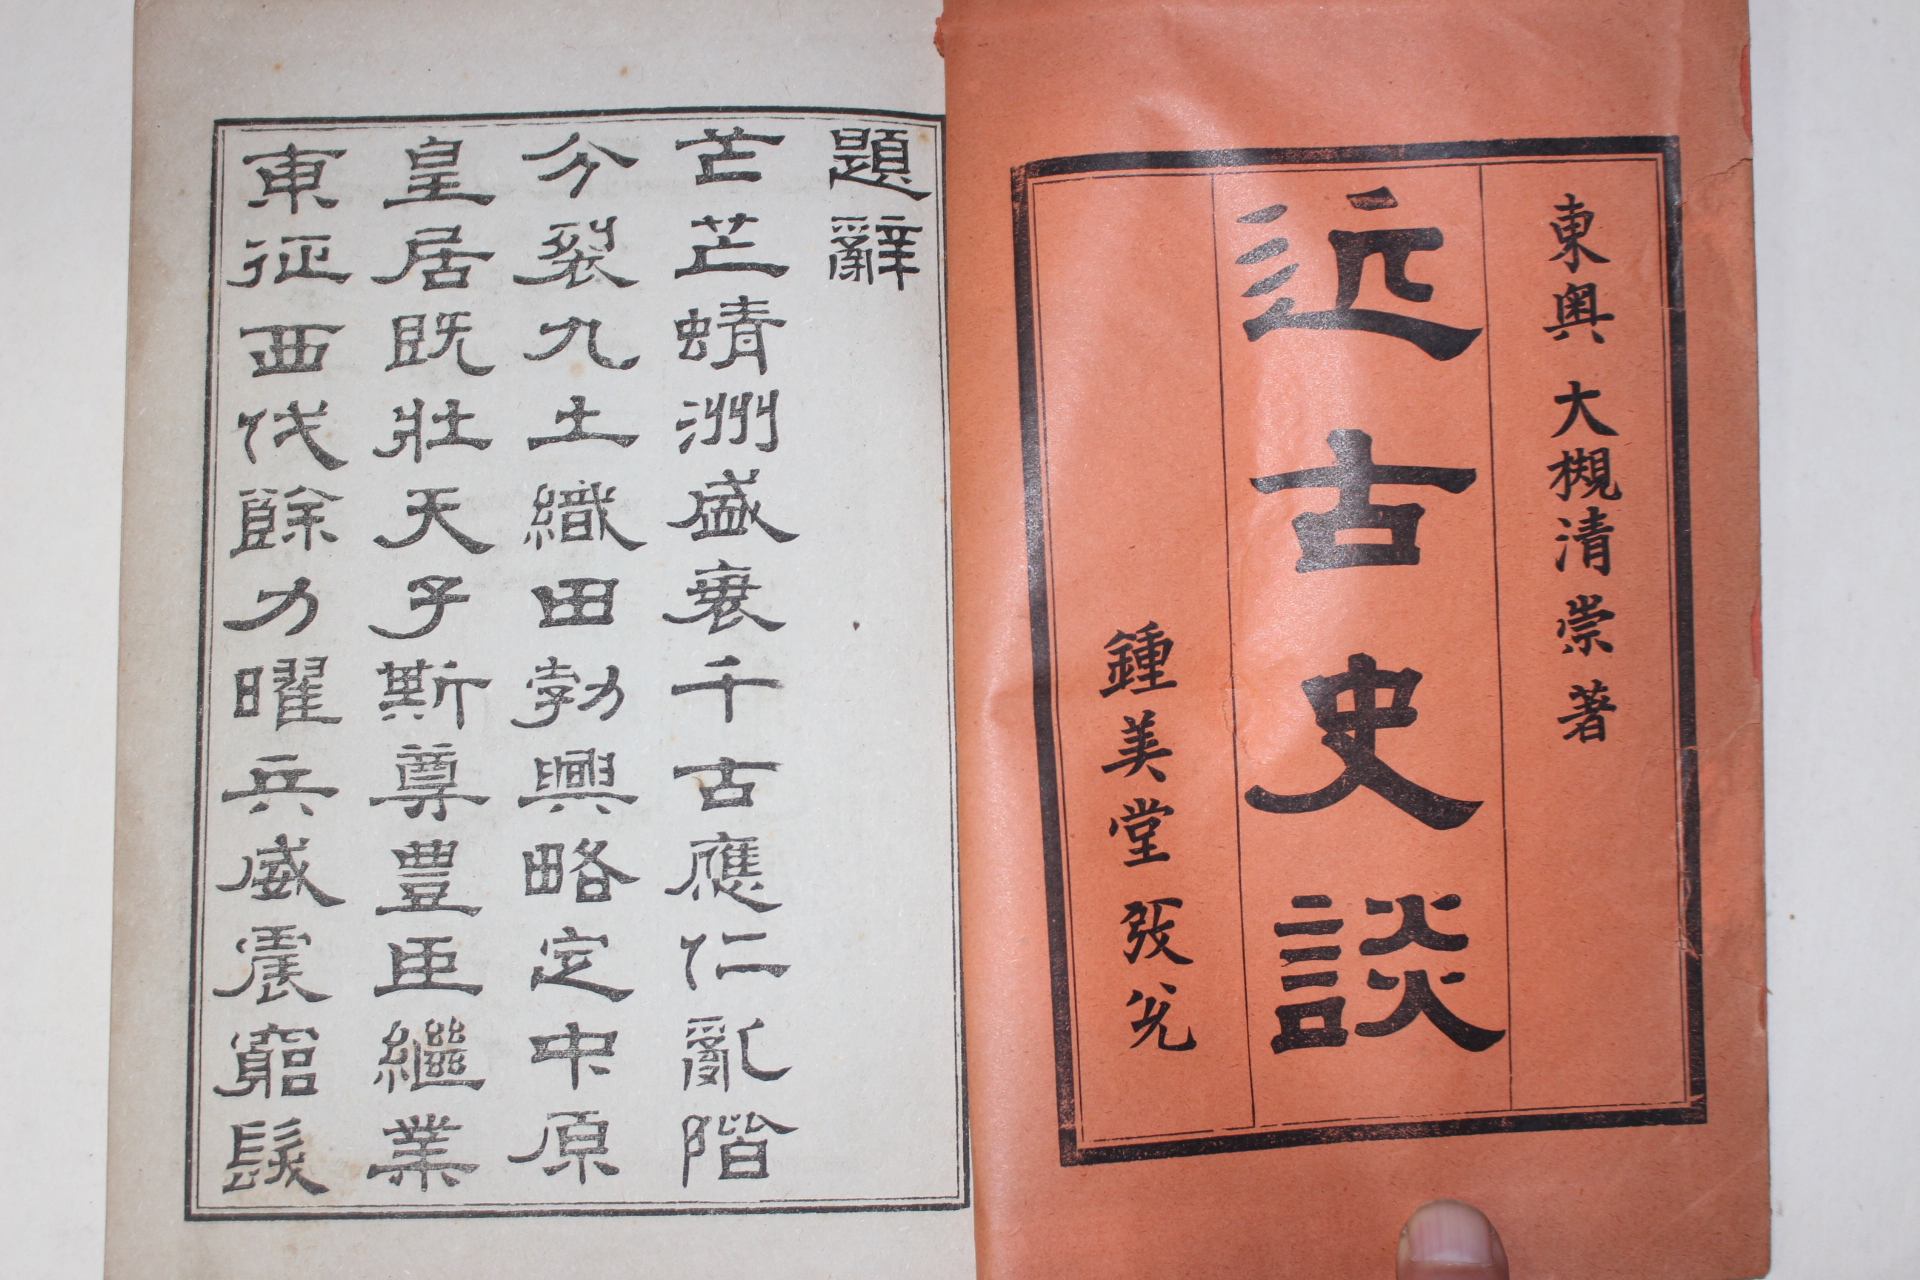 東奥 大槻清崇 著
近古史談
鍾美堂發兌
題辭
芒芒蜻洲盛衰千古應仁亂階
分裂九土織田勃興略定中原
皇居既壯天子斯尊豊臣繼業
東征西伐餘力曜兵威震窮髮